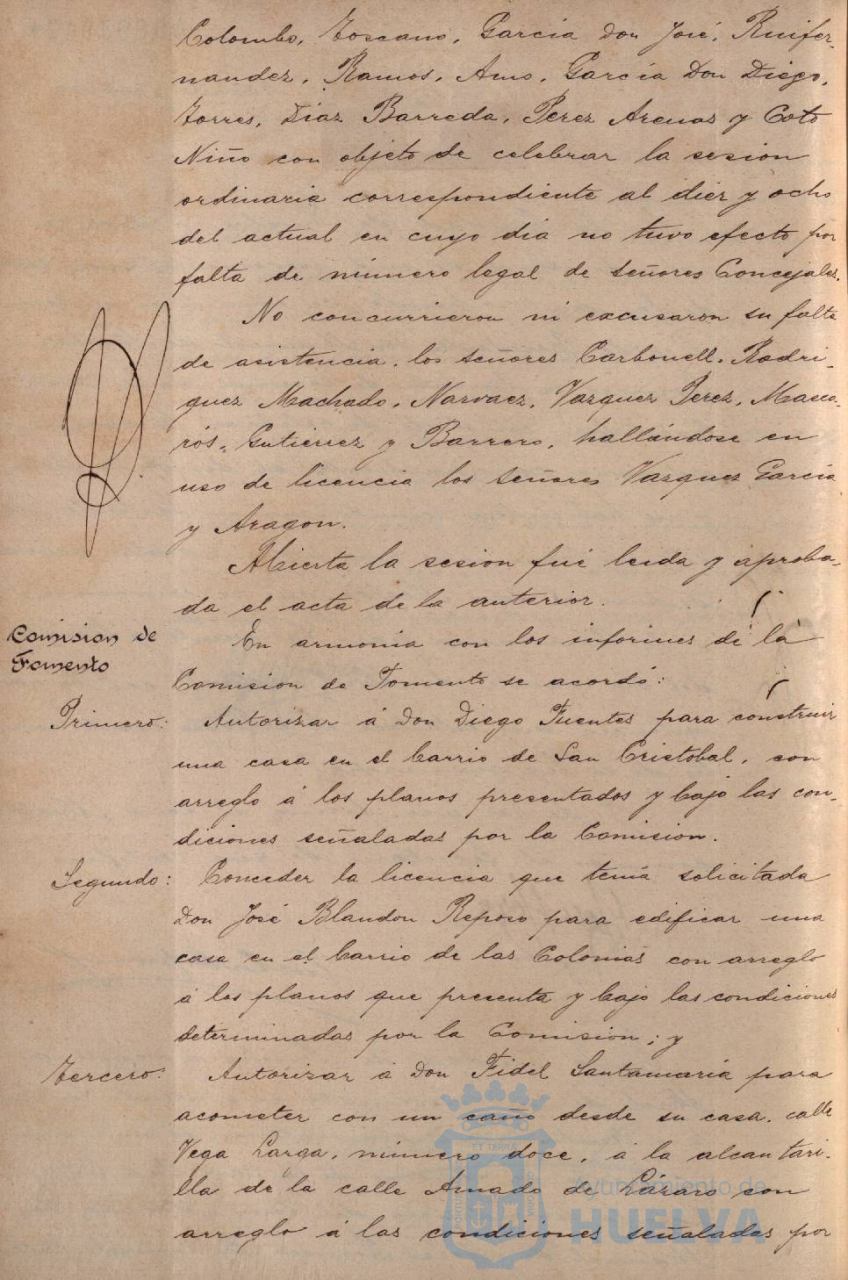 Colombo, Toscano, García Don José, Ruifer-
nandez, Ramos, Amo, García Don Diego,
Torres, Díaz Barreda, Perez Arenas y Coto
Niño con objeto de celebrar la sesion
ordinaria correspondiente al diez y ocho
del actual en cuyo dia no tuvo efecto por
falta de número legal de señores Concejales.
No concurrieron ni excusaron su falta
de asistencia, los señores Carbonell, Rodri-
guez Machado, Narvaez, Vazquez Perez, Masca-
rós, Gutierrez y Barrero, hallándose en
uso de licencia los señores Vazquez García
y Aragon.
Abierta la sesion fué leida y aproba-
da el acta de la anterior.
Comision de
Fomento
En armonía con los informes de la
Comision de Fomento se acordó:
Primero: Autorizar á Don Diego Fuentes para construir
una casa en el barrio de San Cristobal, con
arreglo á los planos presentados y bajo las con-
diciones señaladas por la Comision.
Segundo: Conceder la licencia que tenía solicitada
Don José Blandon Reposo para edificar una
casa en el barrio de las Colonias con arreglo
á los planos que presenta y bajo las condiciones
determinadas por la Comision; y
Tercero: Autorizar á Don Fidel Santamaría para
acometer con un caño desde su casa, calle
Vega Larga, número doce, á la alcantari-
lla de la calle Amado de Lázaro con
arreglo á las condiciones señaladas por
Ayuntamiento de
HUELVA